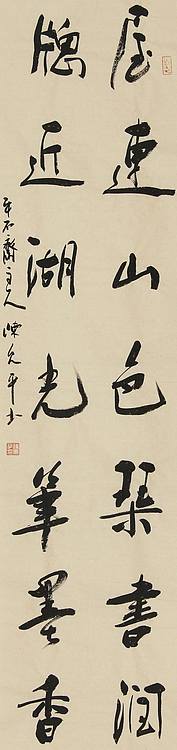 屋連山色琴書潤
牕近湖光筆墨香
平石齋主人陳允平书